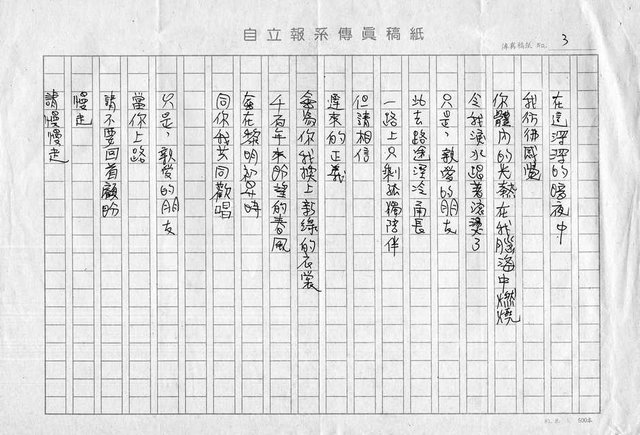 自立報系傳真稿紙
傳真稿紙 No. 3
在這深深的暗夜中
我彷彿感覺
你體內的光熱在我腦海中燃燒
令我淚水跟著滾燙了
只是，親愛的朋友
此去路途深冷而長
一路上只剩孤獨陪伴
但請相信
遲來的正義
會為你我換上新綠的衣裳
千百年來盼望的春風
會在黎明初昇時
同你我共同歡唱
只是，親愛的朋友
當你上路
請不要回首顧盼
慢走
請慢慢走